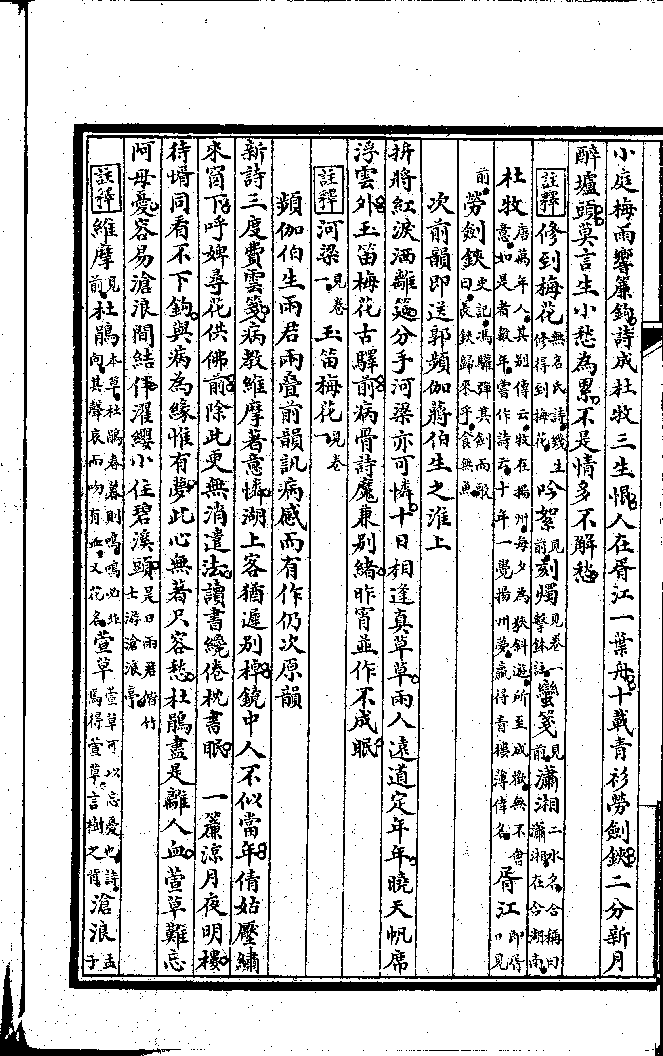 小庭梅雨響簾鉤詩成杜牧三生恨人在胥江一葉舟十載青衫勞劍鋏二分新月
醉壚頭莫言生小愁為累不是情多不解愁
註釋 修到梅花無名氏詩幾生修得到梅花吟絮見前刻燭見卷一擊鉢註蠻箋見前瀟湘二水名合稱曰瀟湘在今湖南
杜牧唐萬年人其別傳云牧在揚州每夕為狹斜遊所至成歡無不會意如是者數年嘗作詩云十年一覺揚州夢贏得青樓薄倖名胥江即胥口見
前勞劍鋏史記馮驩彈其劍而歌曰長鋏歸來乎食無魚
次前韻即送郭頻伽蔣伯生之淮上
拚將紅淚洒離筵分手河梁亦可憐十日相逢真草草兩人遠道定年年曉天帆席
浮雲外玉笛梅花古驛前病骨詩魔兼別緒昨宵並作不成眠
註釋 河梁見卷一玉笛梅花見卷一
頻伽伯生兩君兩疊前韻訊病感而有作仍次原韻
新詩三度費雲箋病教維摩著意憐湖上客猶遲別棹鏡中人不似當年倩姑壓繡
來窗下呼婢尋花供佛前除此更無消遣法讀書纔倦枕書眠　一簾涼月夜明樓
待壻同看不下鉤與病為緣惟有夢此心無著只容愁杜鵑盡是離人血萱草難忘
阿母憂容易滄浪間結伴濯纓小住碧溪頭是日兩君偕竹士游滄浪亭
註釋 維摩見前杜鵑本草杜鵑春暮則鳴鳴必北向其聲哀而吻有血又花名萱草萱草可以忘憂也詩焉得萱草言樹之背滄浪孟子